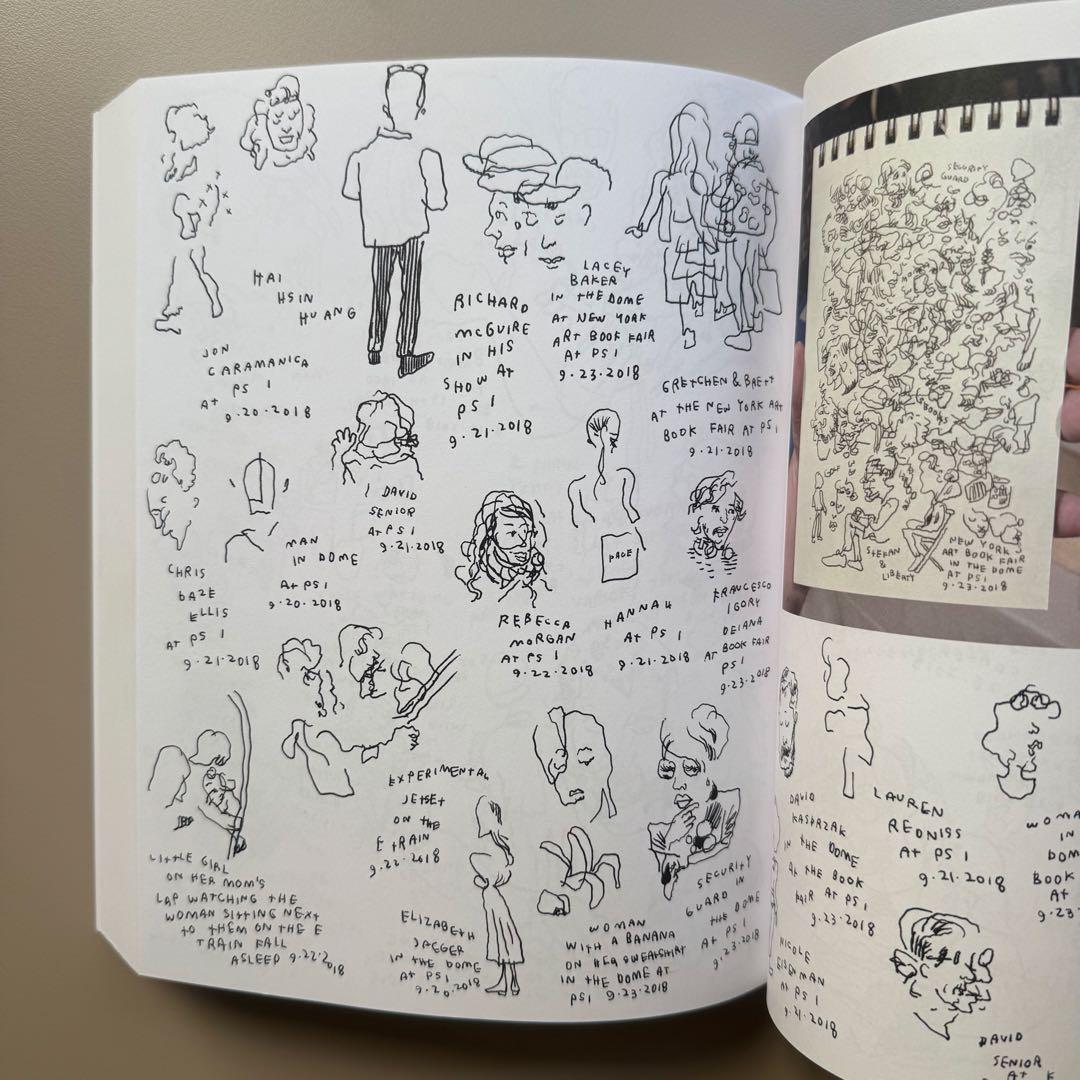 HAI
HSIN
HUANG
JON
CARAMANICA
PS 1
AT
9.20.2018
RICHARD
MCGUIRE
IN HIS
SHOW AT
PS 1
9.21.2018
LACEY
BAKER
IN THE DOME
AT NEW YORK
ART BOOK FAIR
AT PS 1
9.23.2018
GRETCHEN & BRETT
AT THE NEW YORK ART
BOOK FAIR AT PS 1
9.21.2018
CHRIS
DAZE
ELLIS
AT PS 1
9.21.2018
MAN
IN DOME
AT PS 1
9.20.2018
DAVID
SENIOR
AT PS 1
9.21.2018
REBECCA
MORGAN
AT PS 1
9.22.2018
PAGE
HANNAH
AT PS 1
9.21.2018
FRANCESCO
IGORY
DEIANA
AT BOOK FAIR
PS 1
9.23.2018
LITTLE GIRL
ON HER MOM'S
LAP WATCHING THE
WOMAN SITTING NEXT
TO THEM ON THE E
TRAIN FALL
ASLEEP 9.22.2018
EXPERIMENTAL
JETSET
ON THE
E TRAIN
9.22.2018
ELIZABETH
JAEGER
IN THE DOME
AT PS 1
9.20.2018
WOMAN
WITH A BANANA
ON HER SWEATSHIRT
IN THE DOME AT
PS 1 9.23.2018
SECURITY
GUARD IN
THE DOME
AT PS 1
9.23.2018
SECURITY
GUARD
BOOKS
STEFAN
&
LIBERTY
NEW YORK
ART BOOK FAIR
IN THE DOME
AT PS 1
9.23.2018
DAVID
KASPRZAK
IN THE DOME
AT THE BOOK
FAIR AT PS 1
9.23.2018
LAUREN
REDNISS
AT PS 1
9.21.2018
WOMA
IN
DOM
BOOK
AT
9.23
NICOLE
EISENMAN
AT PS 1
9.21.2018
DAVID
SENIOR
AT